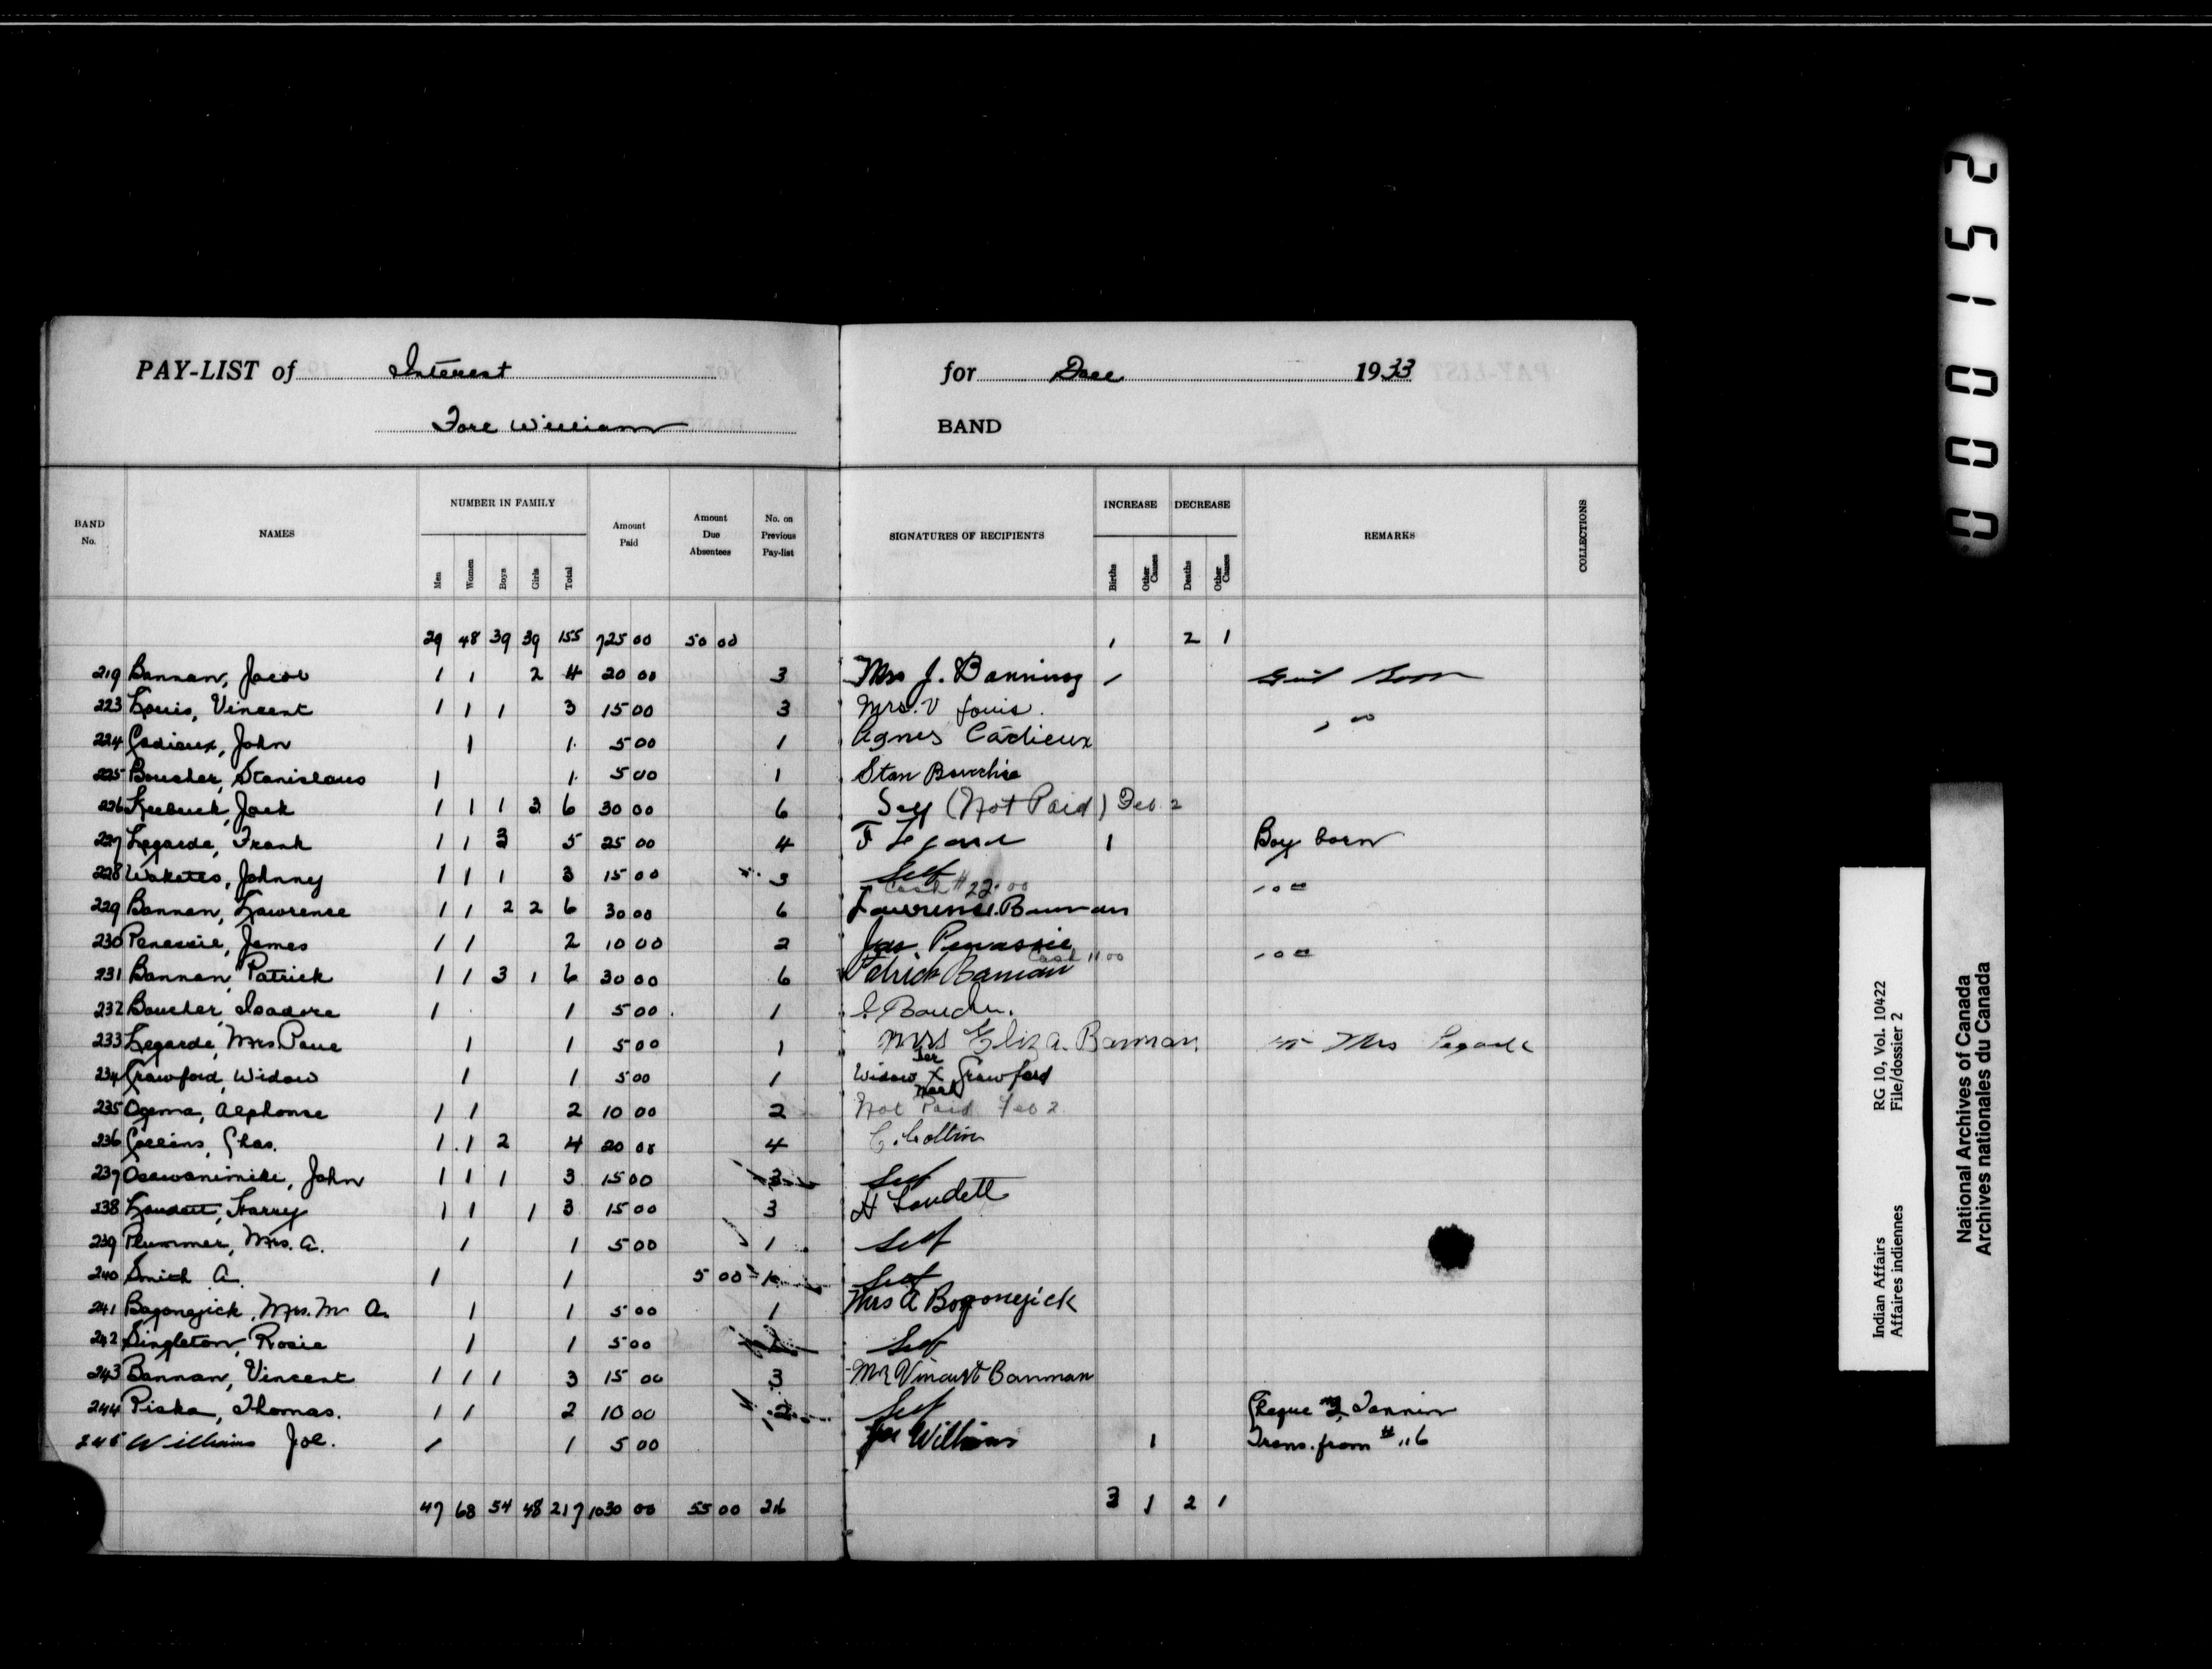 PAY-LIST of Interest for Dec 1933
Fort William BAND
BAND No. NAMES NUMBER IN FAMILY Men Women Boys Girls Total Amount Paid Amount Due Absentees No. on Previous Pay-list SIGNATURES OF RECIPIENTS INCREASE Births Other Causes DECREASE Deaths Other Causes REMARKS COLLECTIONS
29 48 39 39 155 725 00 50 00 1 2 1
219 Bannan, Jacob 1 1 2 4 20 00 3 Mrs J. Banning 1 Girl Born
223 Louis, Vincent 1 1 1 3 15 00 3 Mrs. V Louis.
224 Cadieux, John 1 1 5 00 1 Agnes Cadieux
225 Boucher, Stanislaus 1 1 5 00 1 Stan Bouchie
226 Keebuck, Jack 1 1 1 3 6 30 00 6 Self (Not Paid) Feb 2
227 Legarde, Frank 1 1 3 5 25 00 4 F Legard 1 Boy born
228 Johnny 1 1 1 3 15 00 3 Self
Cash # 22.00
229 Bannan, Lawrence 1 1 2 2 6 30 00 6 Lawrence Banman
230 Penassie, James 1 1 2 10 00 2 Jas Penassie
Cash 11 00
231 Bannan, Patrick 1 1 3 1 6 30 00 6 Patrick Banman
232 Boucher, Isadore 1 1 5 00 1 I. Boucher.
233 Legarde, Mrs Paul 1 1 5 00 1 Mrs Eliza. Banman Mrs Legarde
234 Crawford, Widow 1 1 5 00 1 Widow her X mark Crawford
235 Ogema, Alphonse 1 1 2 10 00 2 Not Paid Feb 2
236 Collins, Chas. 1 1 2 4 20 00 4 C. Collins
237 Osawanimiki, John 1 1 1 3 15 00 3 Self
238 Loudett, Harry 1 1 1 3 15 00 3 H Loudett
239 Plummer, Mrs. A. 1 1 5 00 1 Self
240 Smith A. 1 1 5 00 1 Self
241 Bagonegick, Mrs. M A. 1 1 5 00 1 Mrs A Bogonegick
242 Singleton, Rosie 1 1 5 00 1 Self
243 Bannan, Vincent 1 1 1 3 15 00 3 Mr Vincent Banman
244 Piska, Thomas. 1 1 2 10 00 2 Self Cheque
245 Williams Joe. 1 1 5 00 Joe Williams 1 Trans. from # 116
47 68 54 48 217 1030 00 55 00 216 3 1 2 1
000152
Indian Affairs RG 10, Vol. 10422
Affaires indiennes File/dossier 2
National Archives of Canada
Archives nationales du Canada